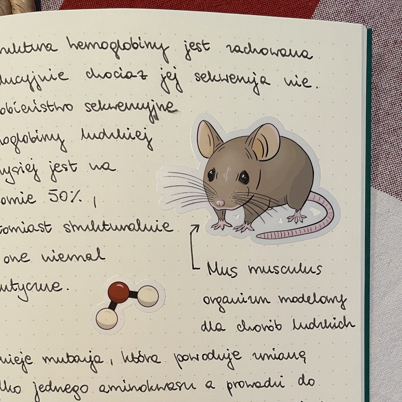 struktura hemoglobiny jest zachowana
ewolucyjnie chociaż jej sekwencja nie.
podobieństwo sekwencyjne
hemoglobiny ludzkiej
mysiej jest na
poziomie 50%,
natomiast strukturalnie
one niemal
identyczne.
Mus musculus
organizm modelowy
dla chorób ludzkich
istnieje mutacja, która powoduje zmianę
tylko jednego aminokwasu a prowadzi do